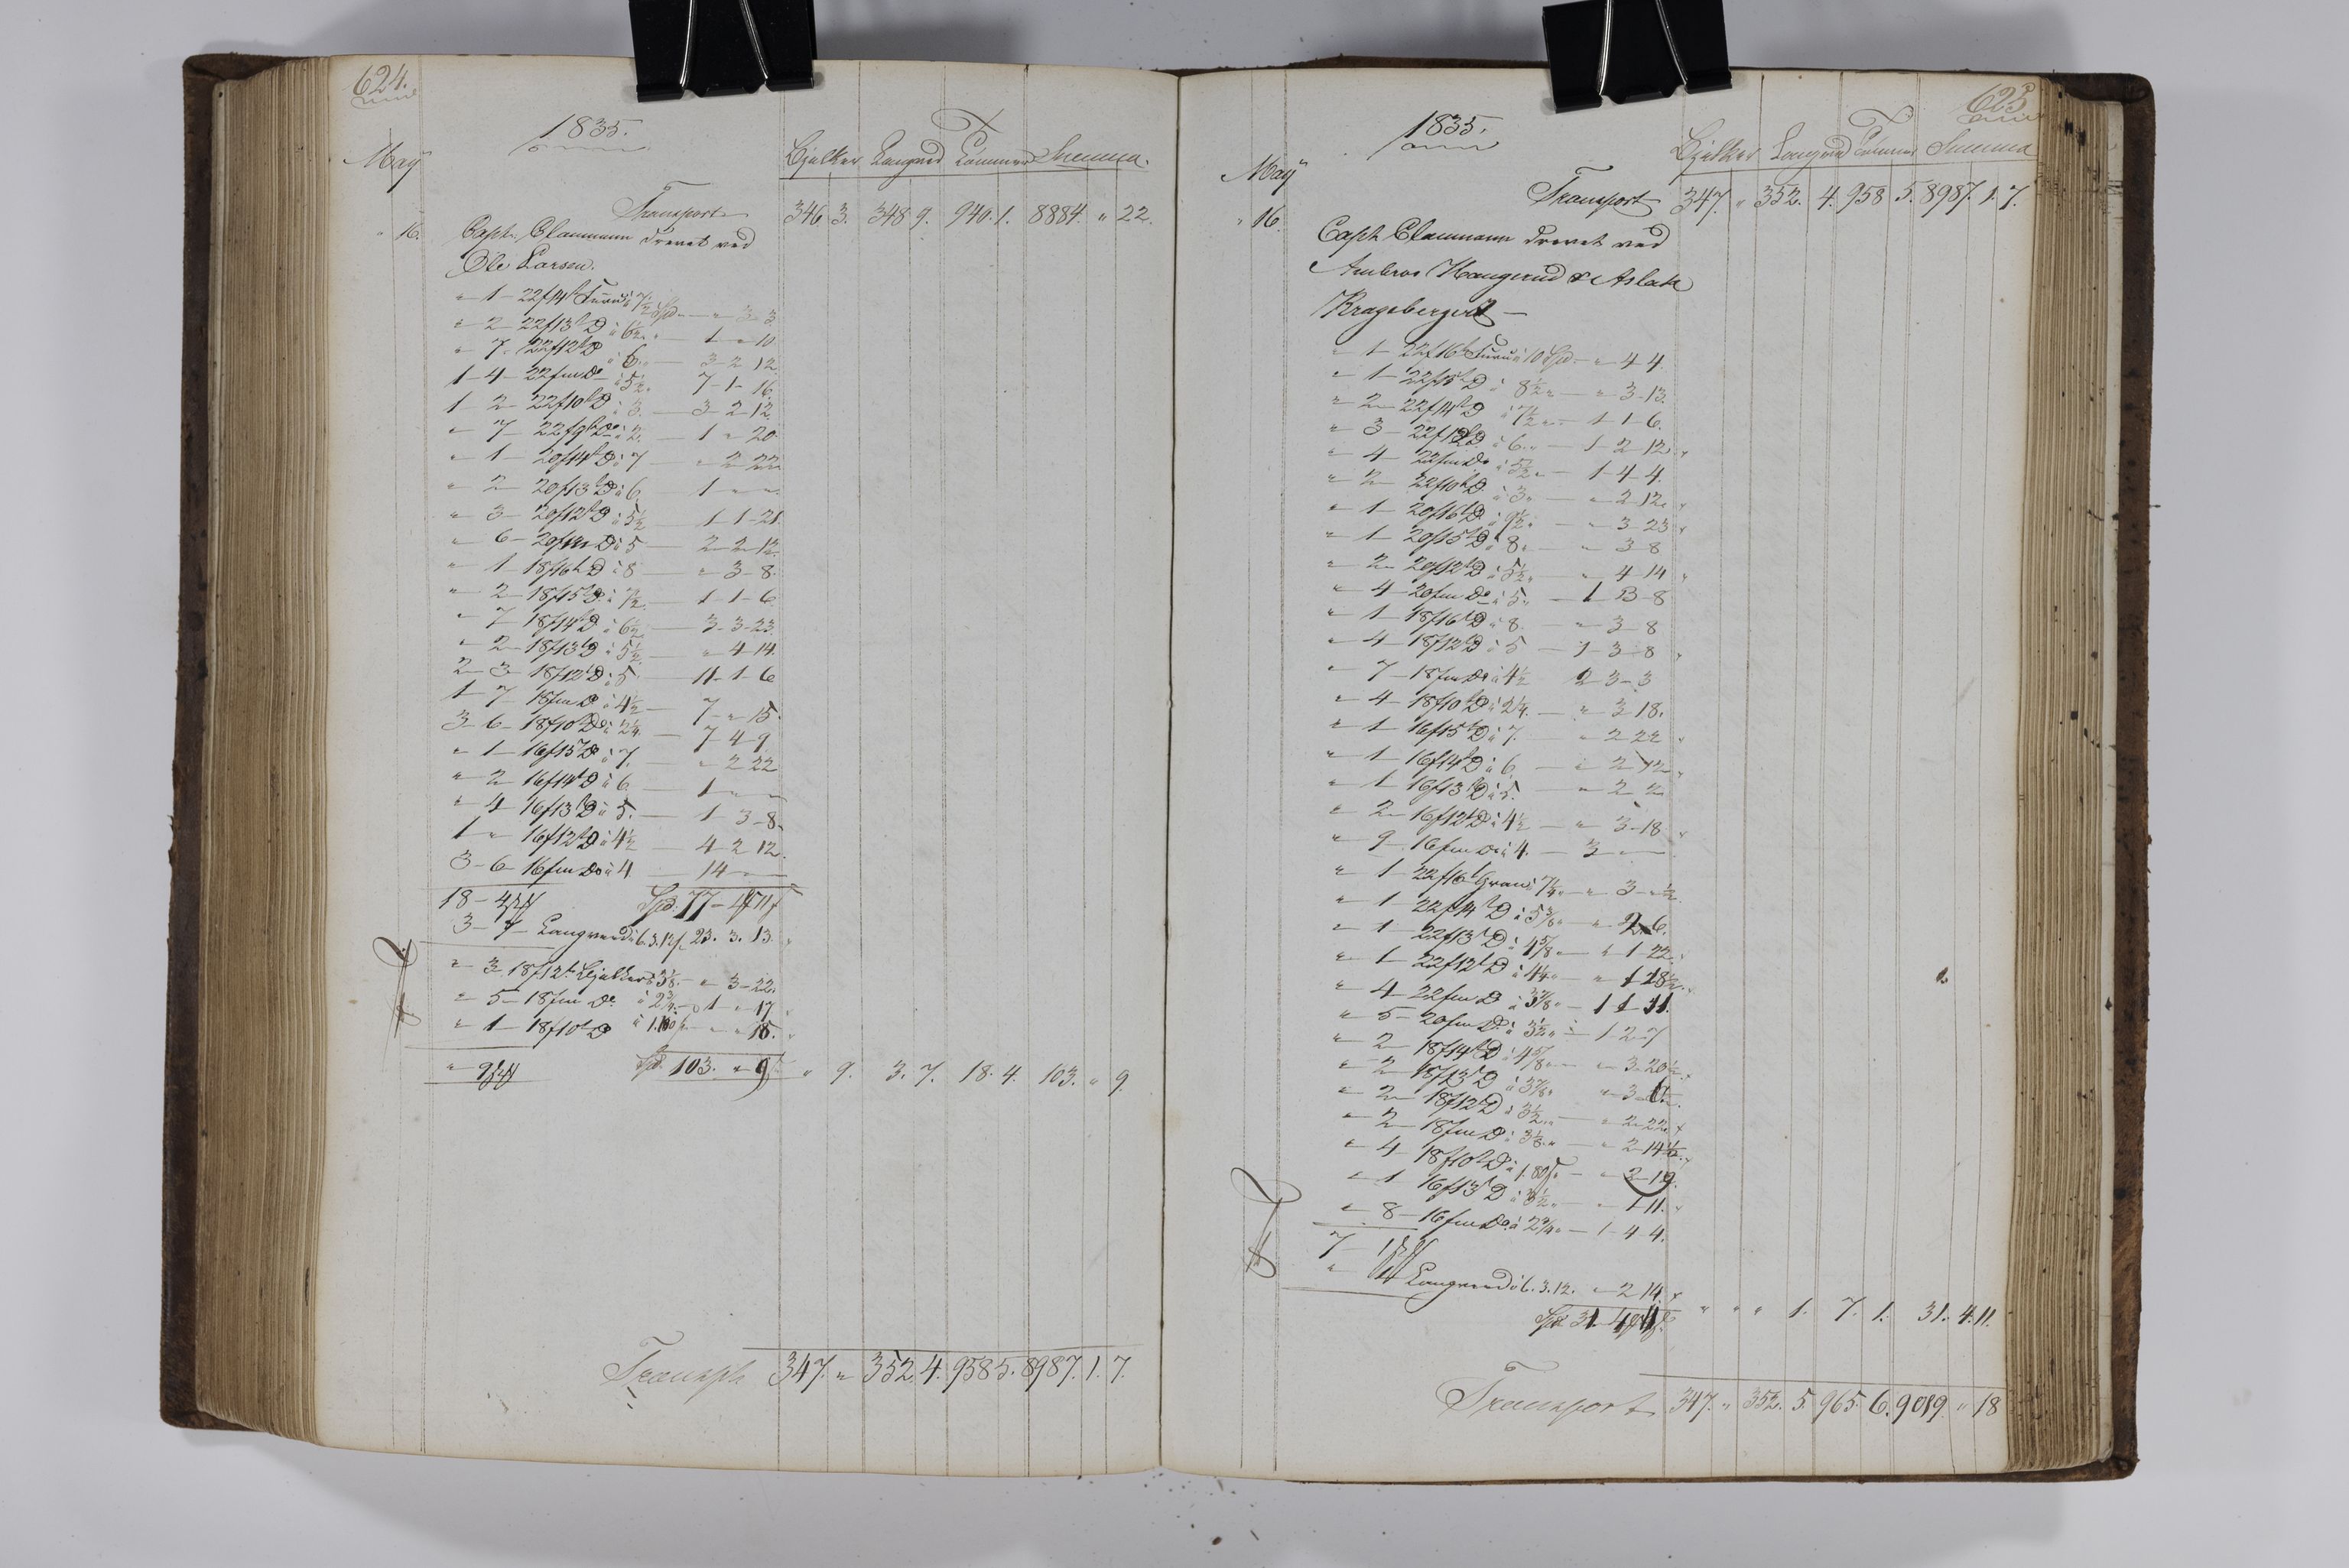 624.
1835.
May
Bjelker Langved Tömmer Summa.
Transport 346. 3. 348 9. 940. 1. 8884. " 22.
" 16. Capt. Claumann drevet ved
Ole Larsen.
" 1 - 22f 14t Furu à 7½ Spd - " 3 3
" 2 - 22f 13t D à 6½ " - 1 - " 10
" 7 - 22f 12t D à 6 " - 3 - 2 12
1 - 4 - 22f m Do à 5½ " 7 - 1 - 16
1 - 2 - 22f 10t D à 3. - 3 - 2 12
" 7 - 22f 9t Do à 2. - 1 - " 20
" 1 - 20f 14t D à 7 - " 2 22
" 2 - 20f 13t D à 6 - 1 " "
" 3 - 20f 12t D à 5½ - 1 - 1 - 21
" 6 - 20f m D à 5 - 2 - 2 - 12
" 1 - 18f 16t D à 8 - " 3 - 8
" 2 - 18f 15t D à 7½ - 1 - 1 - 6
" 7 - 18f 14t D à 6½ - 3 - 3 - 23
" 2 - 18f 13t D à 5½ - " 4 14.
2 - 3 - 18f 12t D à 5 - 11 - 1 - 6
1 - 7 - 18f m D à 4½ - 7 - " 15
3 - 6 - 18f 10t Do à 2¼ - 7 4 9
" 1 - 16f 15t D à 7. - " 2 22
" 2 - 16f 14t D à 6 - 1 " "
" 4 - 16f 13t D à 5. - 1 - 3 - 8
1 " - 16f 12t D à 4½ - 4 - 2 12
3 - 6 - 16f m Do à 4 - 14 - " -
18 - 4 Spd. 77 - 4 11
3 - 7 Langved à 6. 3. 12 f. 23. 3. 13.
" 3. 18f 12t Bjelker à 3⅛ - " 3 - 22.
" 5 - 18f m Do à 2¾ - 1 - " 17
" 1 - 18f 10t D à 1.80 f. - " " 15.
" 9 Spd. 103. " 9 " 9. 3. 7. 18. 4. 103. " 9
Transpt 347. " 352. 4. 958 5. 8987. 1. 7.
625
1835.
May
Bjelker Langved Tömmer Summa
Transport 347. " 352. 4. 958 5. 8987. 1. 7.
" 16. Capt Claumann drevet ved
Ambros Haugerud & Aslak
Krageberget -
" 1 - 22f 16t Furu à 10 Spd - " 4 4
" 1 - 22f 15t D à 8½ " - " 3 - 13.
" 2 - 22f 14t D à 7½ " - 1 - 1 - 6.
" 3 - 22f 12t D à 6 " - 1 - 2 - 12
" 4 - 22f m Do à 5½ " - 1 - 4 - 4.
" 2 - 22f 10t D à 3 " - " 2 12.
" 1 - 20f 16t D à 9½ " - " 3 - 23
" 1 - 20f 15t D à 8 " - " 3 - 8
" 2 - 20f 12t D à 5½ " - " 4 14
" 4 - 20f m Do à 5 " - 1 - 3 - 8
" 1 - 18f 16t D à 8. - " 3 - 8
" 4 - 18f 12t D à 5 - 1 - 3 - 8
" 7 - 18f m Do à 4½ 2 - 3 - 3
" 4 - 18f 10t D à 2¼. - " 3 18.
" 1 - 16f 15t D à 7 - " 2 22
" 1 - 16f 14t D à 6 - " 2 12
" 1 - 16f 13t D à 5. - " 2 2
" 2 - 16f 12t D à 4½ - " 3 - 18
" 9 - 16f m Do à 4. - 3 - " -
" 1 - 22f 16t Gran à 7¼ " - " 3 - " ½.
" 1 - 22f 14t D à 5⅜ " - " 2 6.
" 1 - 22f 13t D à 4⅝ " - " 1 - 22.
" 1 - 22f 12t D à 4¼ " - " 1 18½.
" 4 - 22f m D à 3⅞ " - 1 - 1 - 31.
" 5 - 20f m Do à 3½ " - 1 - 2 - 7
" 2 - 18f 14t D à 4⅝ " - " 3 - 20½.
" 2 - 18f 13t D à 3⅞ " " 3 - 6½.
" 2 - 18f 12t D à 3½ " - " 2 - 22.
" 2 - 18f m D à 3⅛ " - " 2 - 14½.
" 4 - 18f 10t D à 1.80 f " - " 3 - 19.
" 1 - 16f 13t D à 3½ " - " 1 11.
" 8 - 16f m Do à 2¾ " - 1 - 4 - 4.
7 - 1
" 1 Langved à 6. 3. 12. " 2 14.
Spd 31. 4 11 " " " 1. 7. 1. 31. 4. 11.
Transport 347. " 352. 5. 965. 6. 9019. " 18